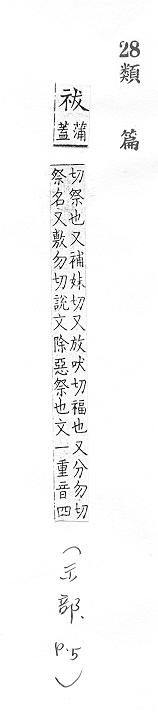 28類篇
祓
蒲蓋
切祭也又補妹切又放吠切福也又分勿切
祭名又敷勿切說文除惡祭也文一重音四
(示部, p.5)